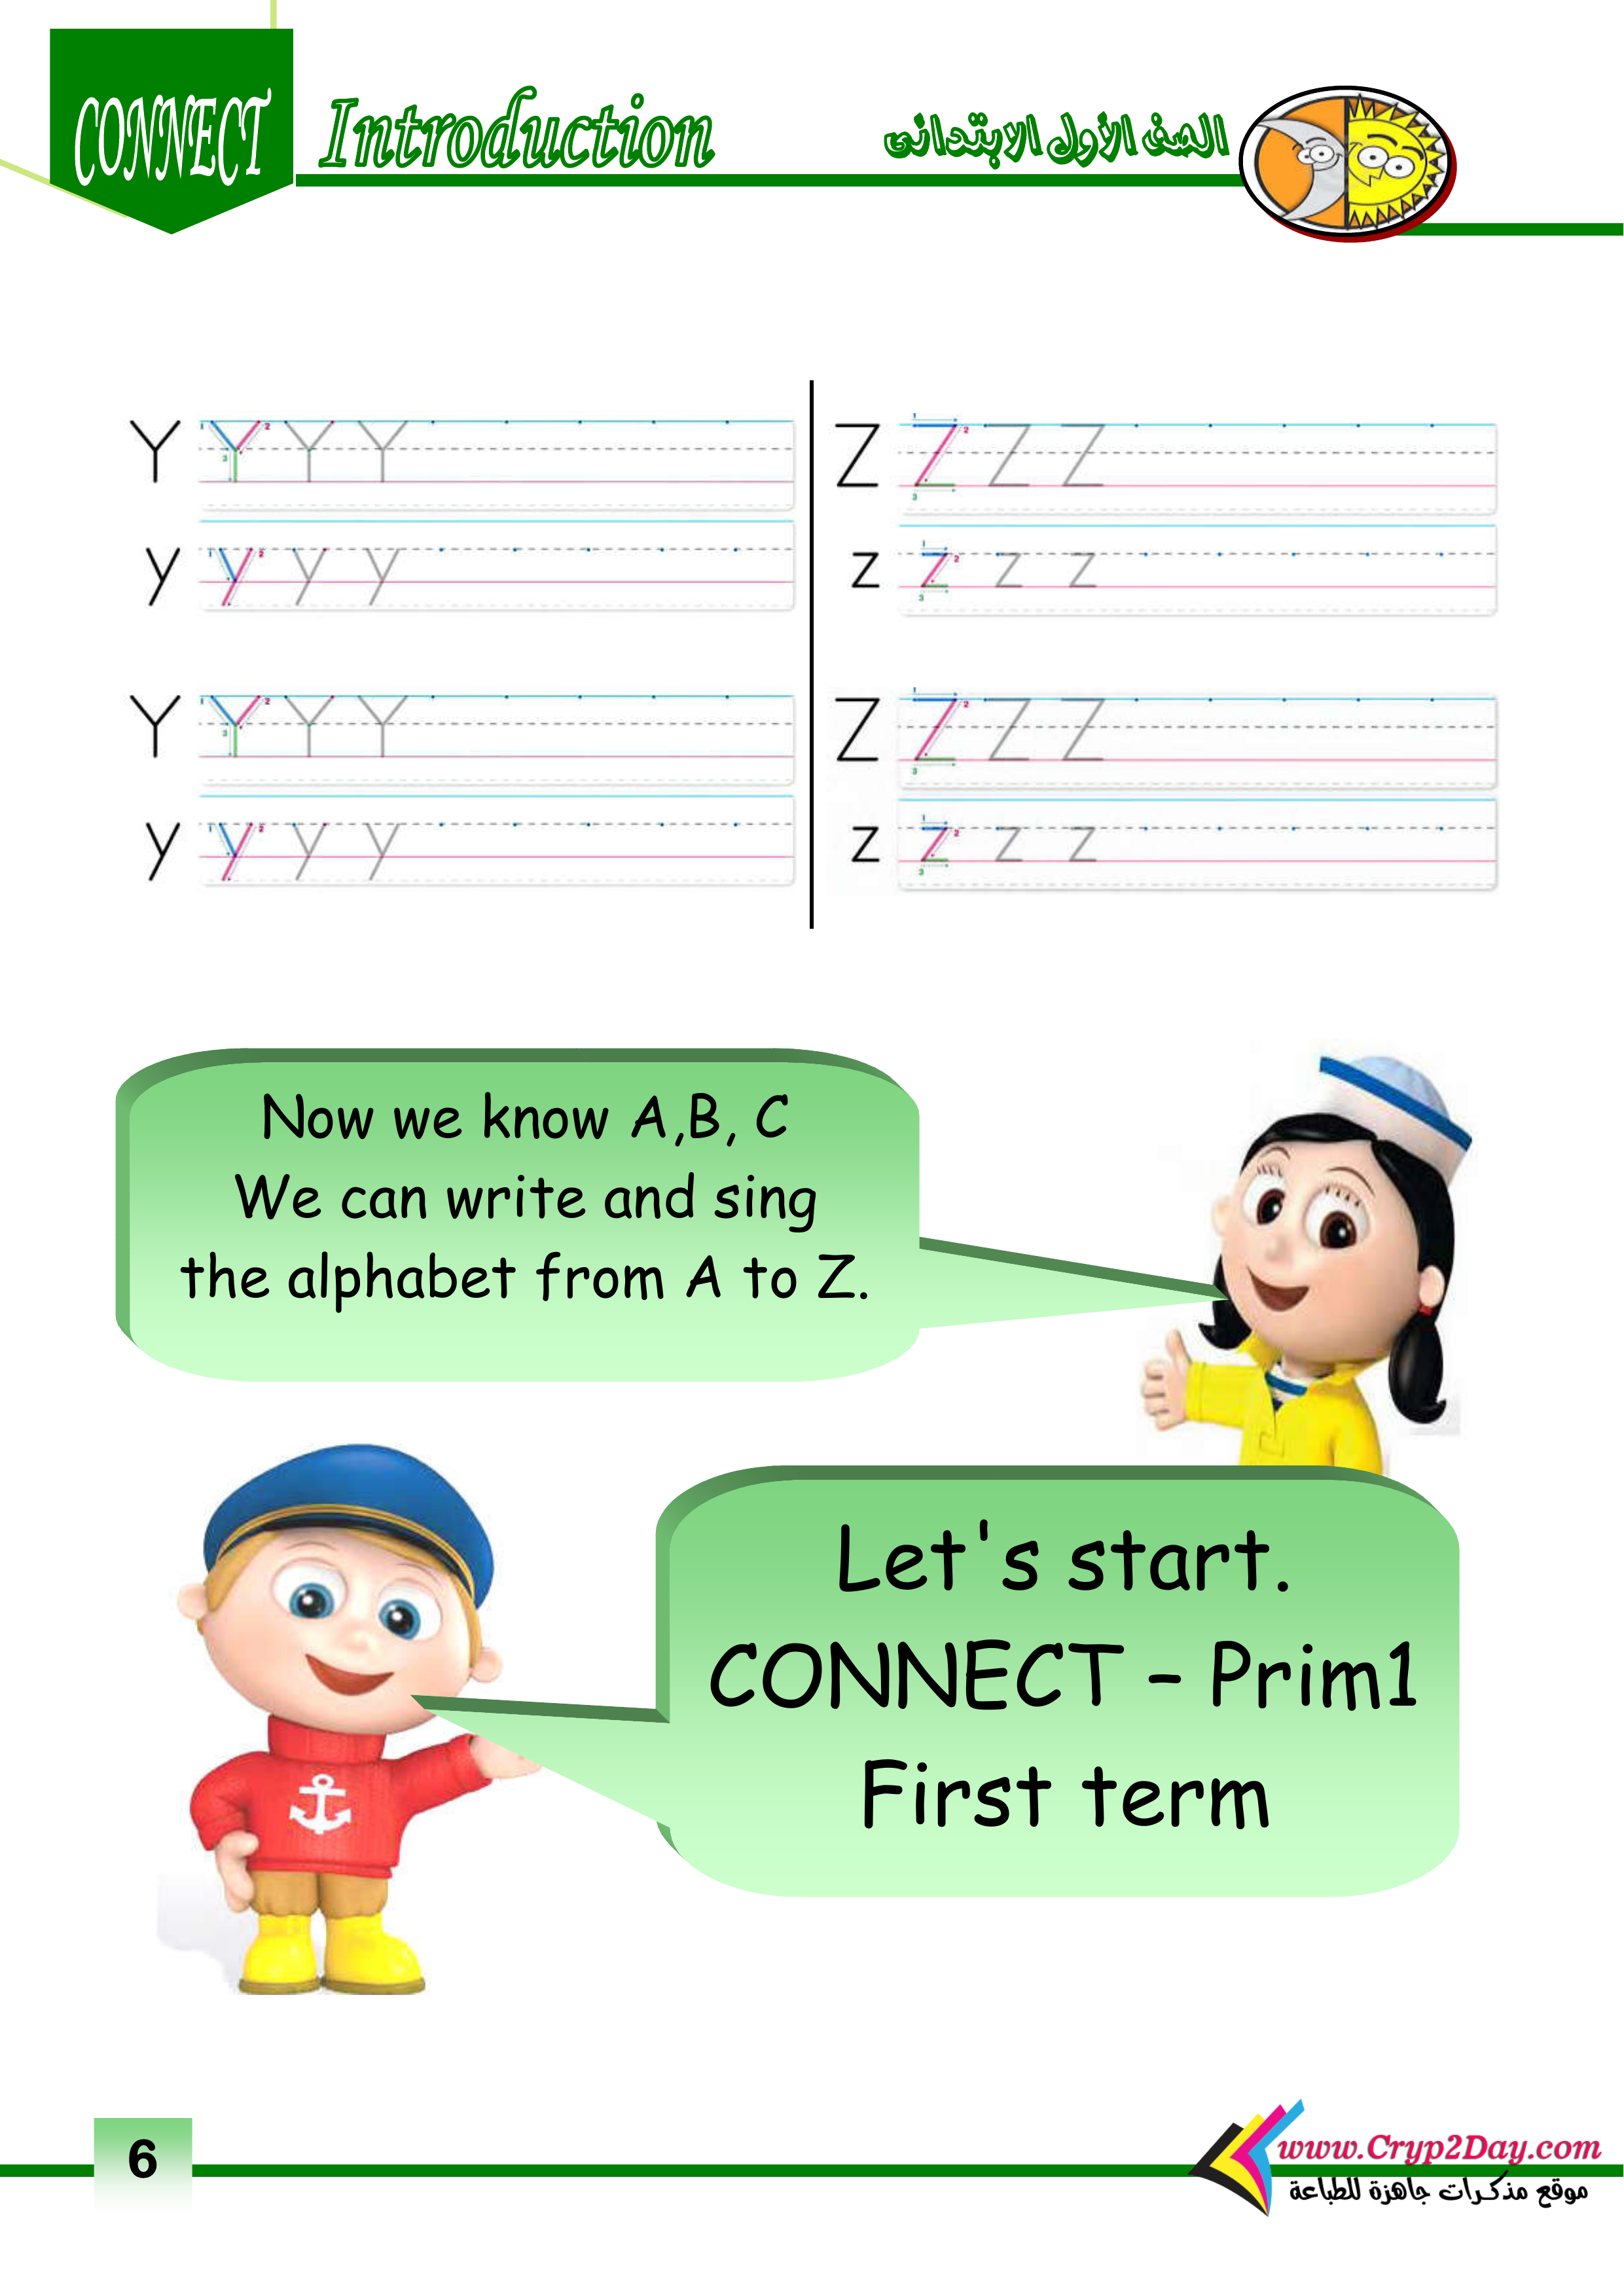 CONNECT
Introduction
الصف الأول الابتدائى
Y Y Y Y
1 2 3
Z Z Z Z
1 2 3
y y y y
1 2
z z z z
1 2 3
Y Y Y Y
1 2 3
Z Z Z Z
1 2 3
y y y y
1 2
z z z z
1 2 3
Now we know A,B, C
We can write and sing
the alphabet from A to Z.
Let's start.
CONNECT – Prim1
First term
6
www.Cryp2Day.com
موقع مذكرات جاهزة للطباعة